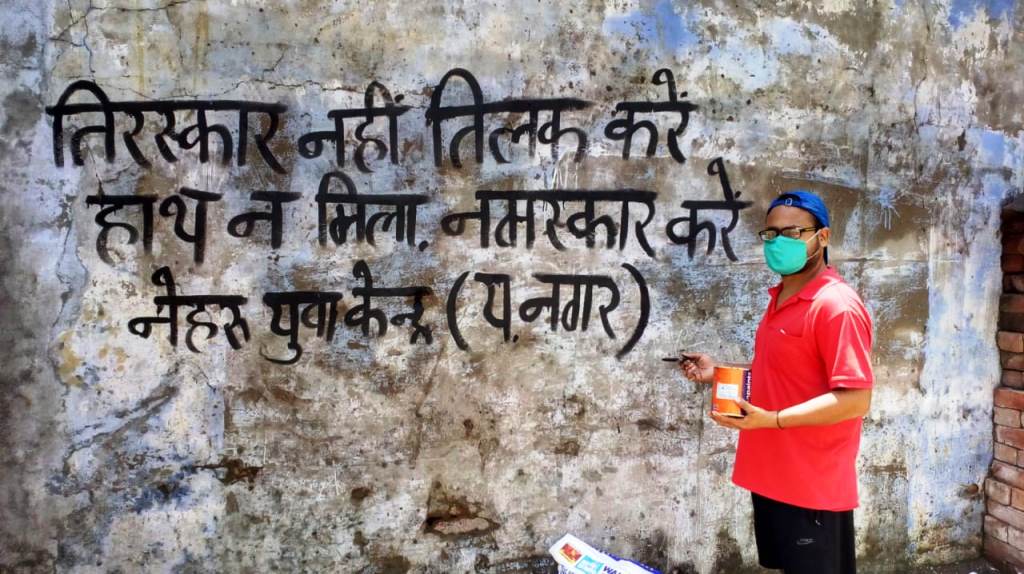 तिरस्कार नहीं तिलक करें
हाथ न मिला, नमस्कार करें
नेहरु युवा केन्द्र (प.नगर)